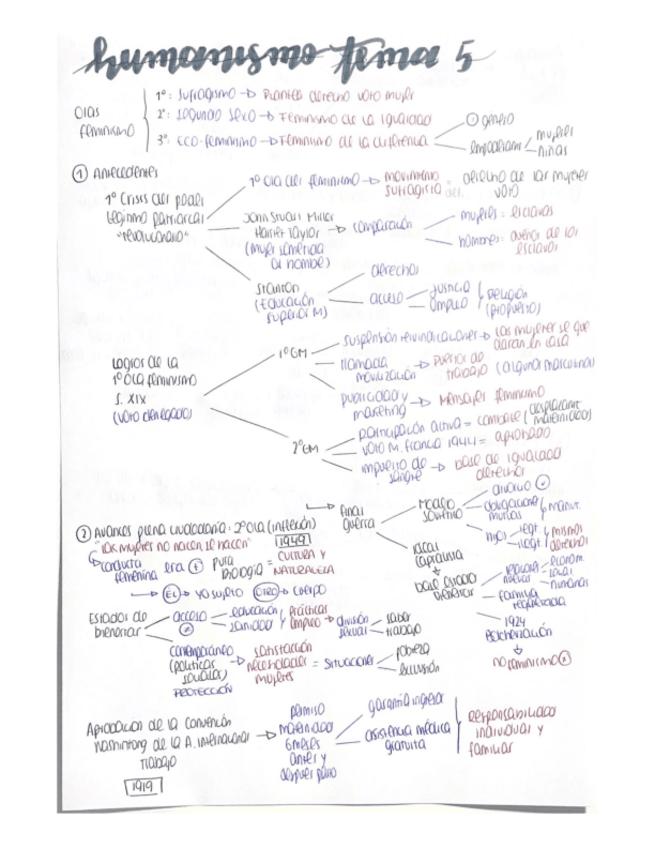 humanismo tema 5
Olas feminismo
1º: Sufragismo → Plantea derecho voto mujer
2º: Segundo sexo → Feminismo de la igualdad
3º: ECO-feminismo → Feminismo de la diferencia
género
empoderar
mujeres
niñas
① Antecedentes
1º Crisis del poder
legítimo patriarcal
"revolucionario"
1º Ola del feminismo → movimiento sufragista
derecho de las mujeres
voto
John Stuart Miller
Harriet Taylor
(mujer sometida
al hombre)
comparación
mujeres = esclavas
hombres: dueños de los
esclavos
Stanton
(Educación
superior M)
derechos
acceso
justicia
empleo
Religión
(propuesto)
Logros de la
1º ola feminismo
S. XIX
(voto denegado)
1º GM
suspensión reivindicaciones → las mujeres se quedaran en casa
llamada
movilización
puestos de
trabajo
publicidad y
marketing
mensajes feminismo
2º GM
participación activa = combate
voto M. Francia 1944 = aprobado
impuesto de
sangre
base de igualdad
derechos
② Avances plena ciudadanía: 2º ola (inflexión)
"las mujeres no nacen, se hacen"
1949
conducta
femenina era
pura
biología =
CULTURA Y
NATURALEZA
ÉL → yo sujeto
OTRO → cuerpo
final
guerra
modelo
soviético
divorcio
obligaciones
mutuas
hijos
legt.
ilegt.
mismos
derechos
base estado
bienestar
familia
1924
no feminismo
Estados de
bienestar
acceso
educación
sanidad
prácticas
empleo
división
sexual
saber
trabajo
contemporáneo
(políticas
sociales)
PROTECCIÓN
satisfacción
necesidades
mujeres
= situaciones
pobreza
exclusión
Aprobación de la Convención
Washintong de la A. Internacional
Trabajo
1919
permiso
maternidad
6 meses
antes y
después parto
garantía ingreso
asistencia médica
gratuita
Responsabilidad
individual y
familiar